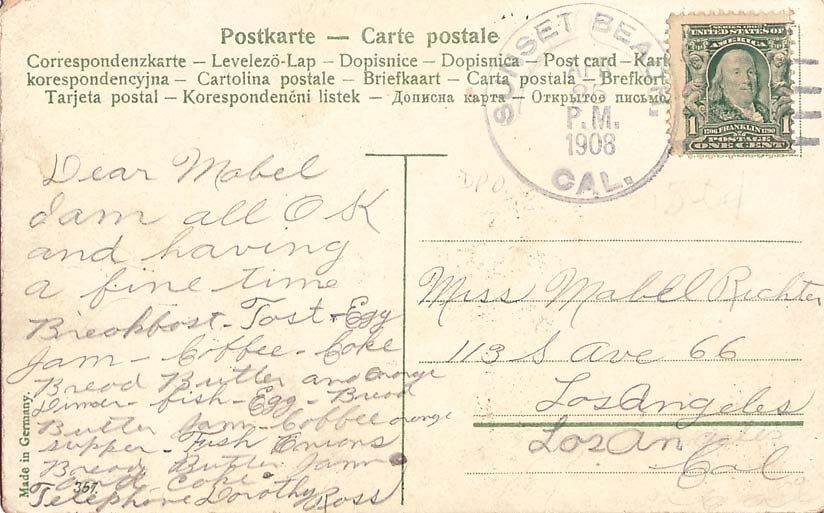 Postkarte — Carte postale
Correspondenzkarte – Levelezö-Lap – Dopisnice – Dopisnica – Post card – Kart
korespondencyjna – Cartolina postale – Briefkaart – Carta postala – Brefkort
Tarjeta postal – Korespondenčni listek – Дописна карта – Открытое письмо
SUNSET BEACH,
25
P.M.
1908
CAL.
SERIES 1902
UNITED STATES OF
AMERICA
1 1706 FRANKLIN 1790 1
POSTAGE
ONE CENT
Dear Mabel
I am all O K
and having
a fine time
Breakbast - Tost + Egg
Jam - Coffee - Coke
Bread Butter and Orange
Dinner - fish - Egg - Bread
Butter Jam - Coffee orange
supper - Fish Onions
Bread Butter Jam
Coke
Telephone Dorothy Ross
Miss Mabel Richter
113 S Ave 66
Los Angeles
Los An
Cal
Made in Germany.
357